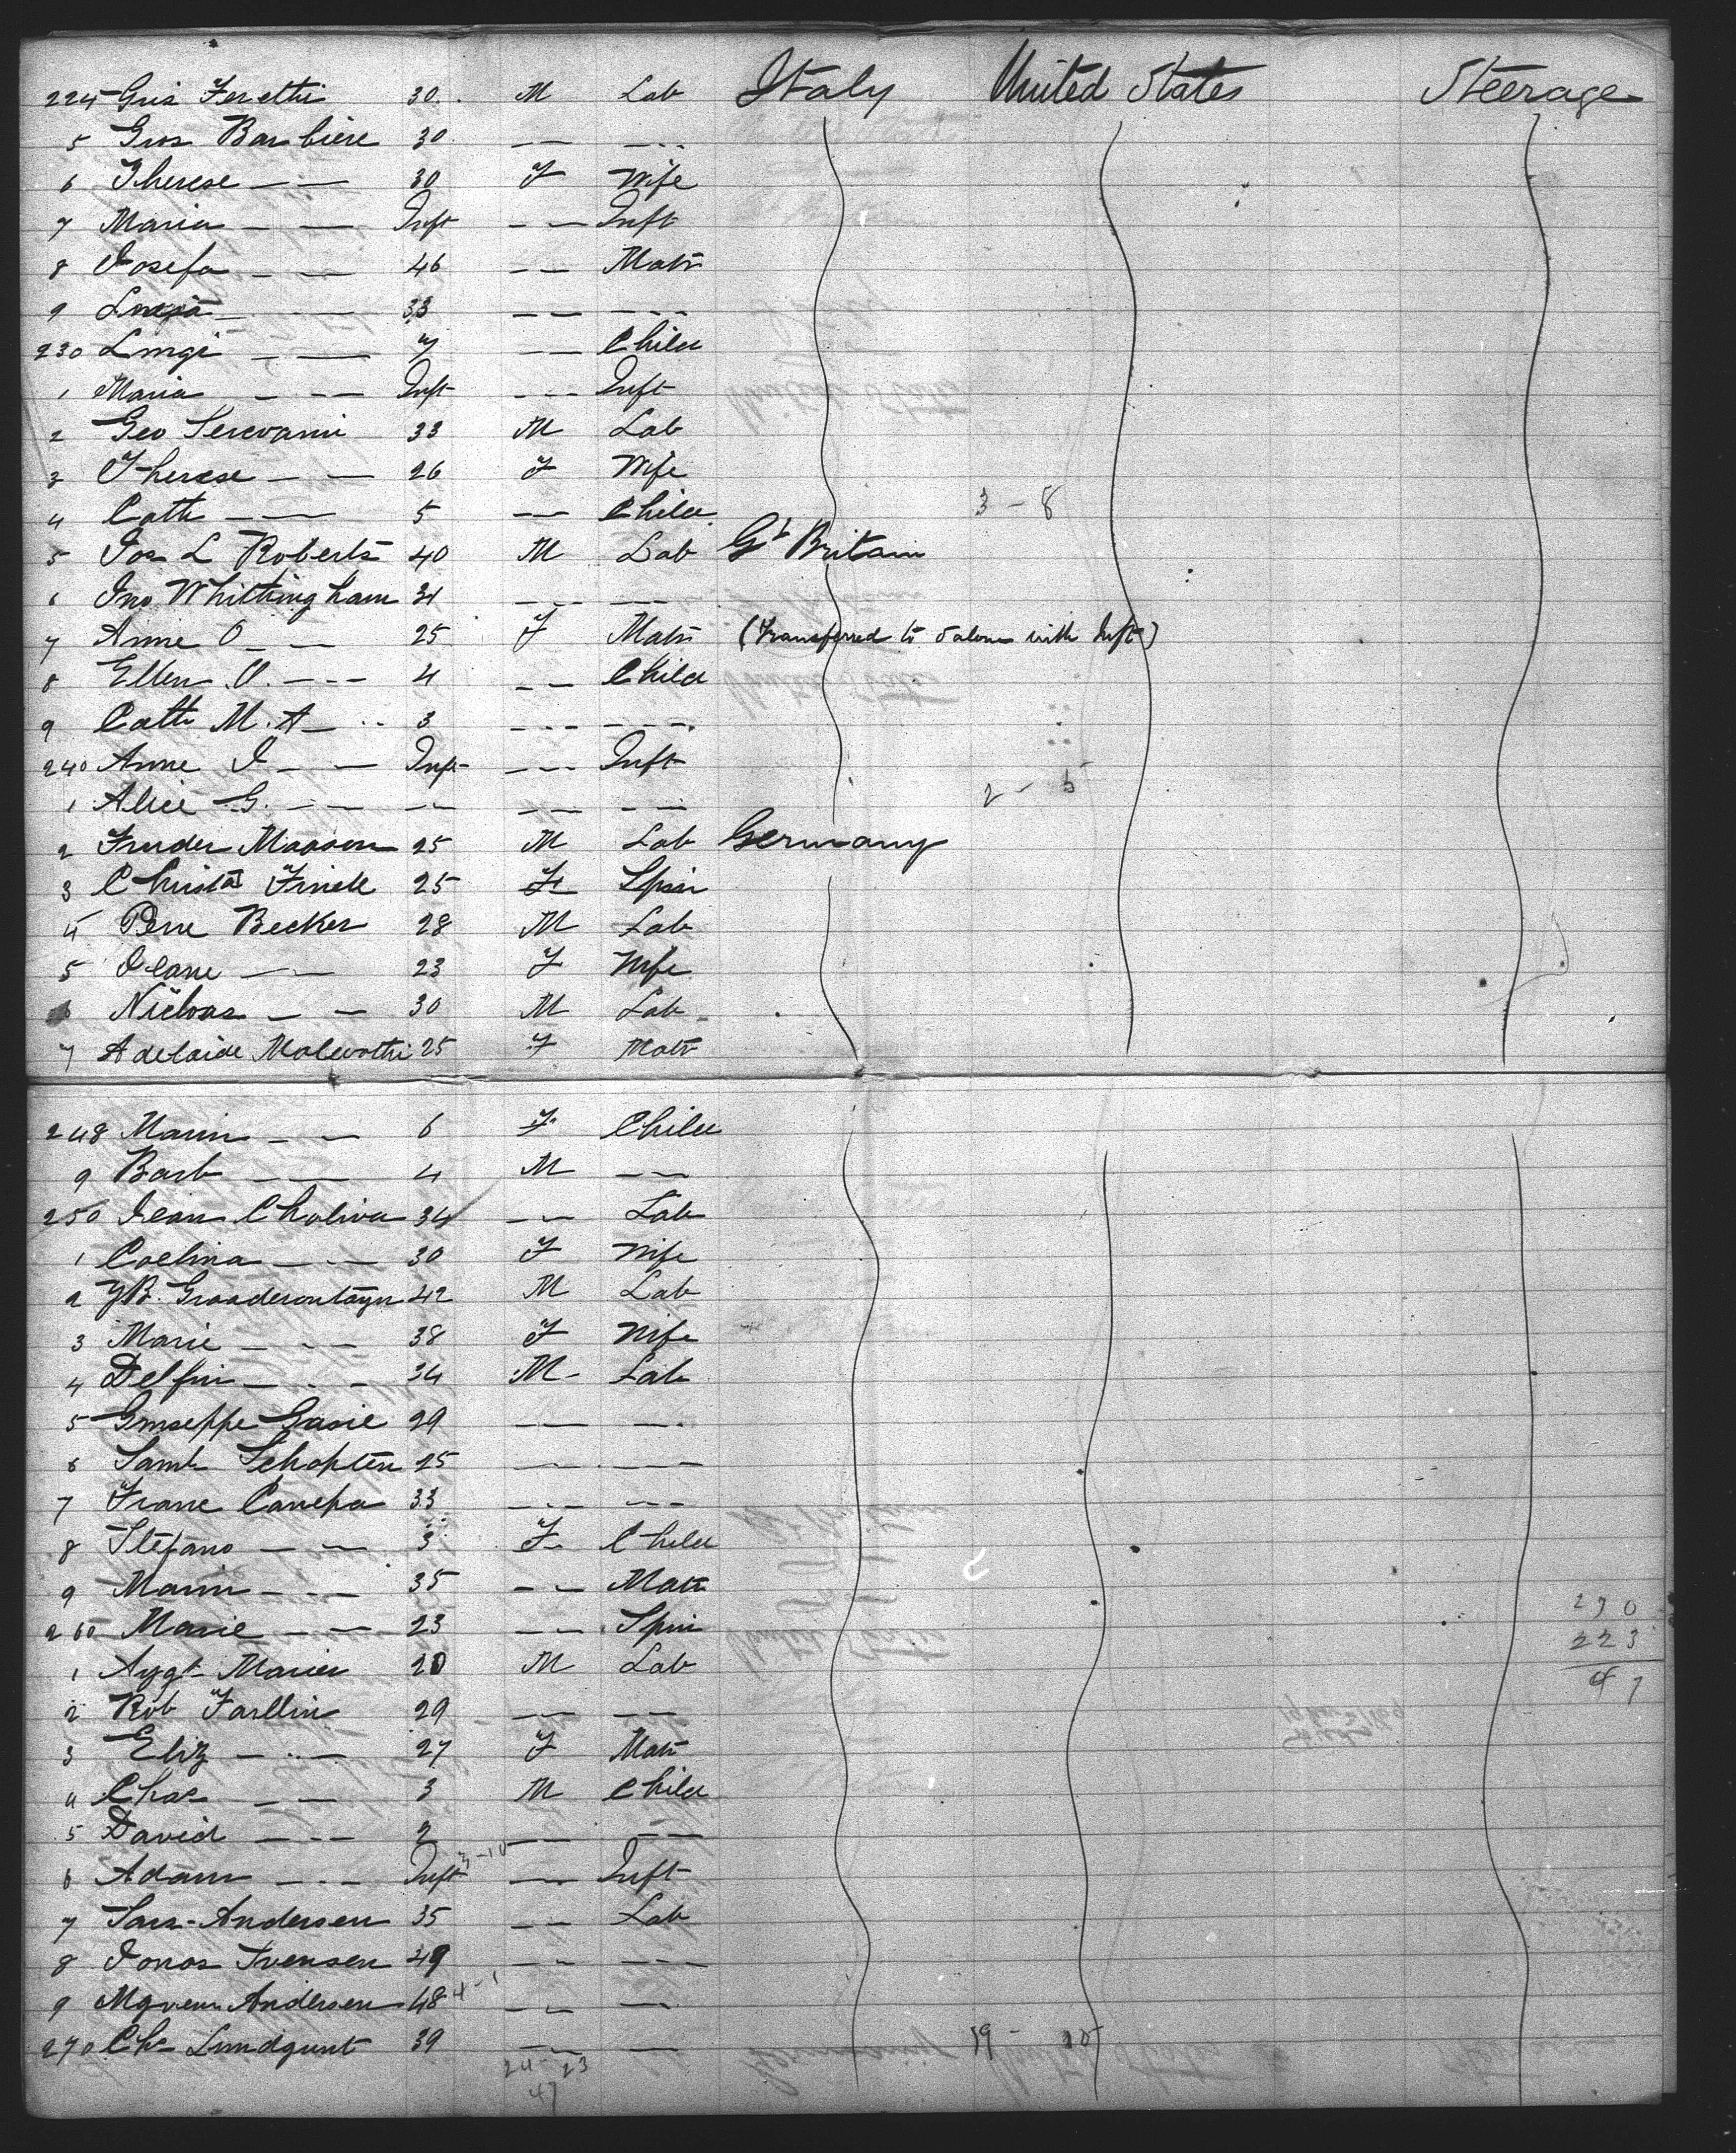 224 Gius Feretti 30 M Lab Italy United States Steerage
5 Gios Barbiere 30 — — — —
6 Therese — — 30 F Wife
7 Maria — — Inft — — Inft
8 Josefa — — 46 — — Matr
9 — — 33 — — — —
230 Luigi — — 7 — — Child
1 Maria — — Inft — — Inft
2 Geo 33 M Lab
3 Therese — — 26 F Wife
4 Cath — — 5 — — Child 3 - 8
5 Jos L Roberts 40 M Lab Gt Britain
6 Jno Whittingham 34 — — — —
7 Anne O — — 25 F Matr (Transferred to Saloon with Inft)
8 Ellen O. — — 4 — — Child
9 Cath M. A — — 3 — — — —
240 Anne I — — Inft — — Inft
1 Alice G. — — — — — — — — 2 - 5
2 25 M Lab Germany
3 25 F Spin
4 Becker 28 M Lab
5 — — 23 F Wife
6 — — 30 M Lab
7 Adelaide 25 F Matr
248 Marin — — 6 F Child
9 Barb — — 4 M — —
250 Jean 34 — — Lab
1 Coelina — — 30 F Wife
2 42 M Lab
3 Marie — — 38 F Wife
4 Delfin — — 34 M Lab
5 Giuseppe 29 — — — —
6 25 — — — —
7 Franc Canepa 33 — — — —
8 Stefano — — 3 F Child
9 Marin — — 35 — — Matr
260 Marie — — 23 — — Spin 270
1 20 M Lab 223
2 Rob 29 — — — — 47
3 Eliz — — 27 F Matr
4 Chas — — 3 M Child
5 David — — 2 — — — —
6 Adam — — Inft 3-10 — — Inft
7 Lars Andersen 35 — — Lab
8 Jonas Svensen 49 — — — —
9 Andersen 48 4-1 — — — —
270 Chs 39 — — — — 19 -
24 - 23
47